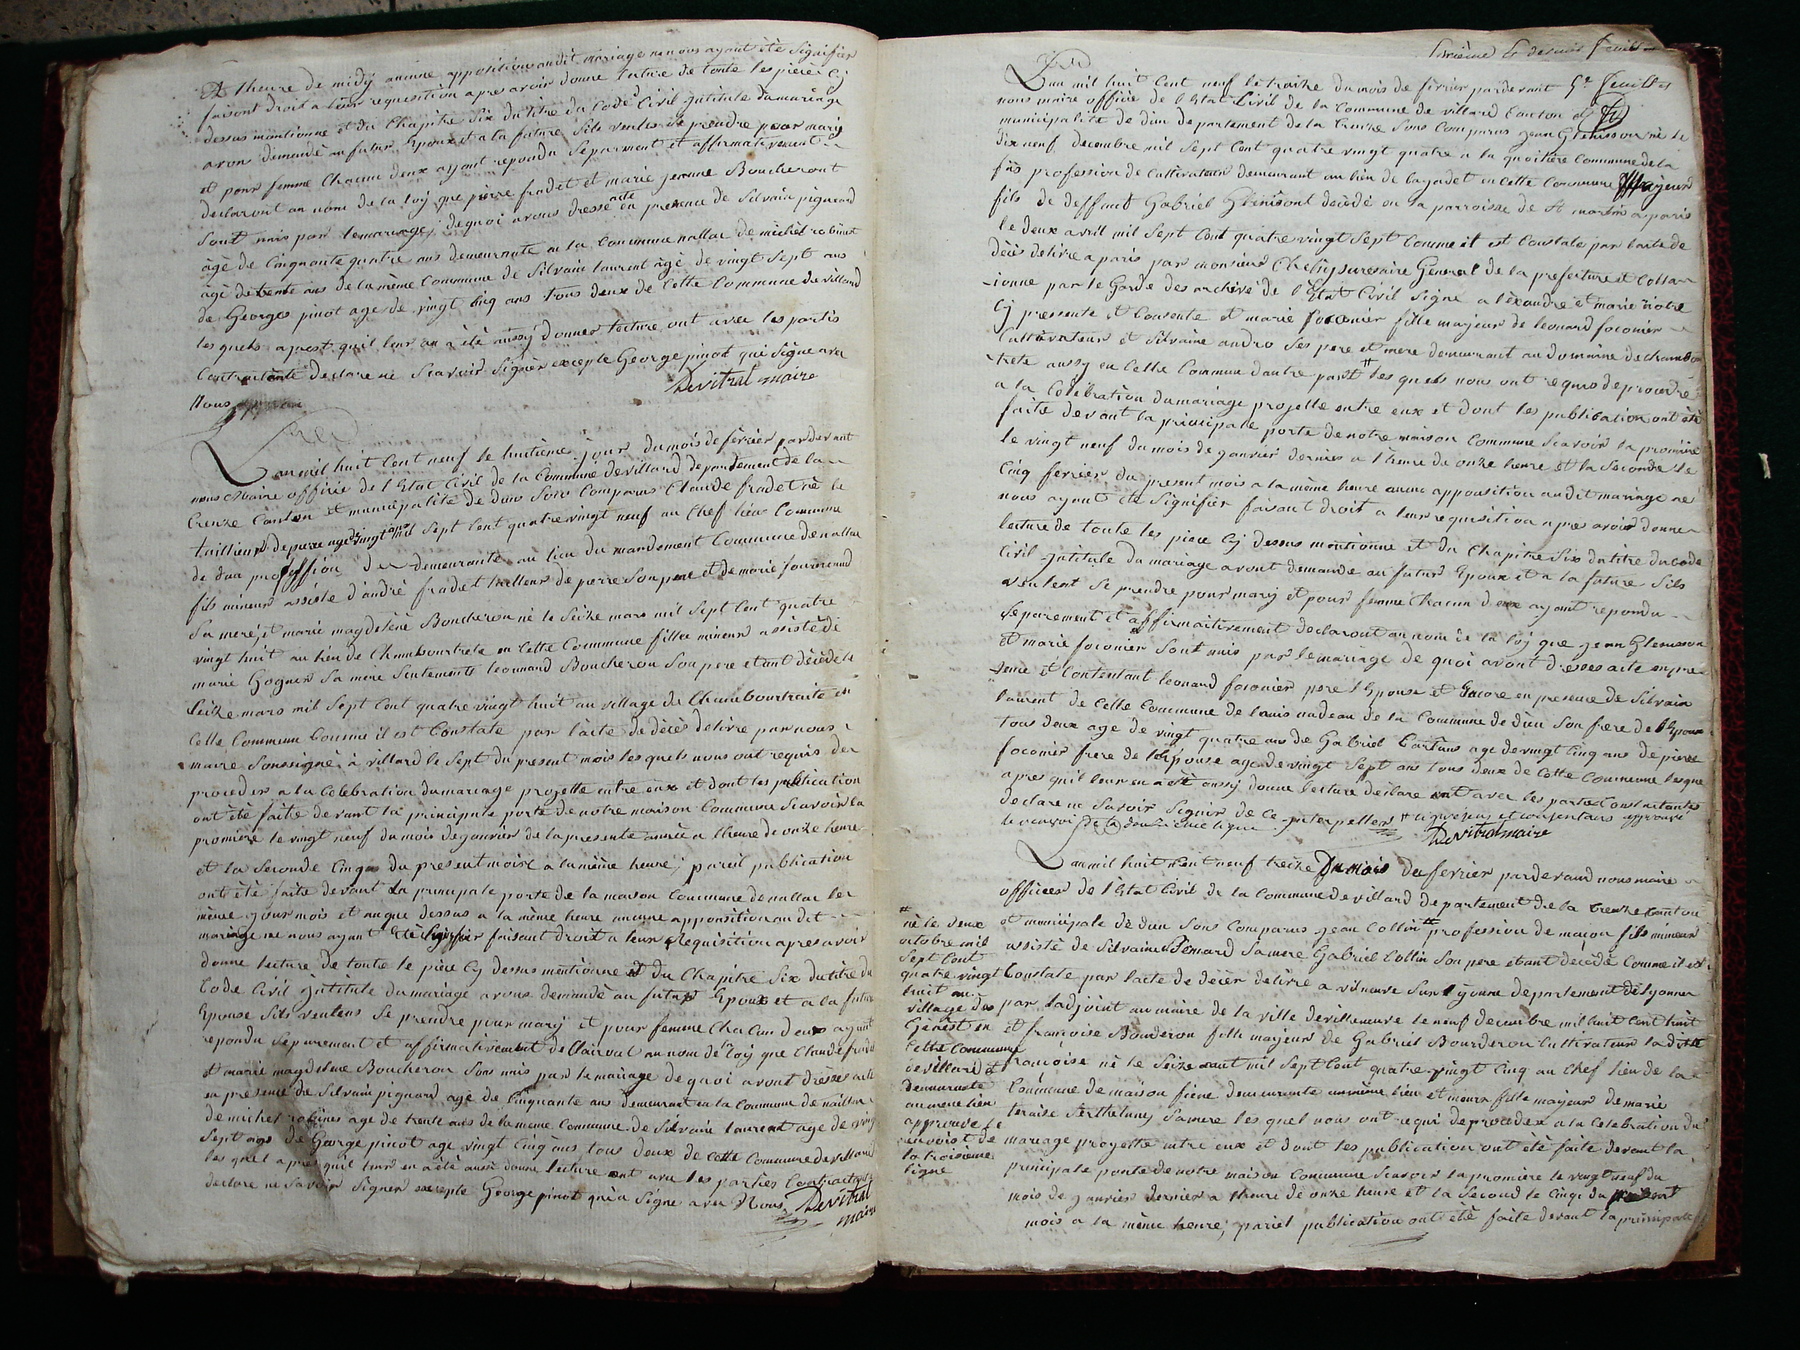 A lheure de midy aucune appositions audit mariage ne nous ayant été signifier
faisant droit a leur requisition apres avoir donne lecture de toute les pièce Cy
desus montionne et du Chapitre Six du titre du Code Civil intitule du mariage
avons demandé au futur Epoux et a la future Sils veulte se prendre pour mary
et pour femme Chacun deux ayant repondu Séparment et affirmativement
declaront au nom de la loy que pierre fradet et marie jeanne Boucheront
Sont unis par le mariage, dequoi avons dressé acte en presence de Silvain pignaud
âgé de Cinquante quatre ans demeurante en la Commune nallac de michel robinet
âgé de trente ans de la même Commune de Silvain laurent âgé de vingt Sept ans
de Georges pinot age de vingt Cinq ans tous deux de Cette Commune de villard
les quels apres quil leur en a été aussy donner lecture ont avec les partis
Contractante Declare ne Scavoir Signer excepte George pinot qui Signe avec
Nous
Devitrat maire
Lan mil huit Cent neuf le huitième jour du mois de févrièr pardevant
nous Maire officié de l'Etat Civil de la Commune de villard departement de la
Creuze Canton et municipalité de dun Sont Comparus Claude fradet né le
tailleur de pierre age de vingt ans mil Sept Cent quatre vingt neuf au Chef lieu Commune
de dun proffession de demeurante au lieu du mandement Commune de nallac
fils mineur assisté d'andré fradet tailleur de pierre Son pere et de marie fourneaud
Sa meré, et marie magdeléne Boucheron né le Seize mars mil Sept Cent quatre
vingt huit au lieu de Chambourtrete en Cette Commune fille mineur assisté de
marie Gogner Sa mere Seulement leonnard Boucheron Son pere etant décédé le
Seize mars mil Sept Cent quatre vingt huit au village de Chambourtraite en
Cette Commun Comme il est Constate par lacte de décès delivre par nous
maire Soussigné à villard le Sept du present mois les quels nous ont requis de
proceder a la Celebration du mariage projette entre eux et dont les publication
ont été faite devant la principale porte de notre maison Commune Scavoir la
promière le vingt neuf du mois de janvier de la presente année a lheure de onze heure
et la Seconde Cinq du present mois a la même heure, pareil publication
ont été faite devant la principale porte de la maison Commune de nallac les
même jour mois et an que dessus a la même heure aucune apposition audit
mariage ne nous ayant été Signifier faisant droit a leur Requisition apres avoir
donne lecture de toute le pièce Cy dessus mentionne et du Chapitre Six du titre du
Code Civil intitule du mariage avons demandé au futur Epoux et a la future
Epouse Sils veulens Se prendre pour mary et pour femme Chacun deux ayant
repondu Separement et affirmativement declairont au nom de la loy que Claude fradet
et marie magdelene Boucheron Sont unis par le mariage de quoi avont dressés acte
en presence de Silvain pignaud, age de Cinquante ans demeurant en la Commune de naillac
de michel robinet age de trente ans de la meme Commune de Silvain laurent age de vingt
Sept ans de George pinot age vingt Cinq ans, tous deux de Cette Commune de villard
les quel apres quil leurs en a été aussi donne lecture ont avec les parties Contractante
declare ne Savoir Signer excepte George pinot qui a Signe avec Nous
Devitrat
maire
et dernier feuillet
5e feuillet
Lan mil huit Cent neuf le traize du mois de février pardevant
nous maire officié de l'Etat Civil de la Commune de villard Canton et
municipalité de dun departement de la Creuze Sont Comparus jean Glenisson né le
dix neuf decembre mil Sept Cent quatre vingt quatre a la Commune de la
profession de Cultivateur demeurant au lieu de en Cette Commune majeur
fils de deffunt Gabriel Glénisont décédé en la parroisse de St a paris
le deux avril mil Sept Cent quatre vingt Sept Comme il est Constate par lacte de
décès delivre a paris par monsieur General de la prefecture et Colla-
tionne par le Garde des archive de l'Etat Civil Signe alexandre et marie
Cy presente et Consente et marie foconier fille majeur de leonard foconier
Cultivateur et Silvaine andro Ses pere et mere demeurant au domaine de chambour-
trete aussy en Cette Commun dautre part # les quels nous ont requis de proceder
a la Celebration du mariage projette entre eux et dont les publication ont été
faite devant la principale porte de notre maison Commune Scavoir la promière
le vingt neuf du mois de janvier dernier a lheure de onze heure et la Seconde le
Cinq fevrier du present mois a la même heure aucune apposition audit mariage ne
nous ayant été Signifier faisant droit a leur requisition apres avoir donne
lecture de toute les piece Cy dessus montionne et du Chapitre Six du titre du Code
Civil intitule du mariage avont demande au futur Epoux et a la future Sils
veulent Se prendre pour mary et pour femme Chacun deux ayant repondu
Separement et affirmaitivement declaront au nom de la loy que jean Glenisson
et marie foconier Sont unis par le mariage de quoi avont dresses acte en pre-
sence et Contentant leonard foconier pere lEpouse et Encore en presence de Silvain
laurent de Cette Commune de louis nadeau de la Commune de dun Son frere de lEpoux
tous deux age de vingt quatre ans de Gabriel age de vingt Cinq ans de pierre
foconier frere de lEpouse age de vingt Sept ans tous deux de Cette Commune lesquel
apres quil leur en a été aussi donne lecture déclare ont avec les partie Contractantes
declare ne Savoir Signer de Ce interpeller # Cy presens et consentans approuvé
le renvoi de la douzieme ligne
Devitrat maire
Lan mil huit Cent neuf treize Du mois de fevrier pardevand nous maire
officier de l'Etat Civil de la Commune de villard departement de la Creuze Canton
et municipale de dun Sont Comparus jean Collin # profession de maçon fils mineur
assisté de Silvaine Sa mere Gabriel Collin Son pere etant decédé Comme il est
Constate par lacte de décès délivré a vileneuve Sur lyonne departement de lyonne
par ladjoint au maire de la ville de villeneuve le neuf decembre mil huit Cent huit
et françoise Bourderon fille majeur de Gabriel Bourderon Cultivateur la ditte
francoise né le Seize aout mil Sept Cent quatre vingt Cinq au Chef lieu de la
Commune de maison fiene demeurante même lieu et fille majeure de marie
teraise Berthelmy Sa mere les quel nous ont requi de proceder a la Celebration du
mariage proyette entre eux et dont les publication ont été faite devant la
principale porte de notre maison Commune Scavoir la promière le vingt neuf du
mois de janvier dernier a lheure de onze heure et la Second le Cinqe du present
mois a la même heure, pariel publication ont été faite devant la principale
# né le deux
octobre mil
Sept Cent
quatre vingt
huit au
village de
Genest en
Cette Commune
de villard et
demeurante
au meme lieu
approuvé le
renvoi de
la troisieme
ligne